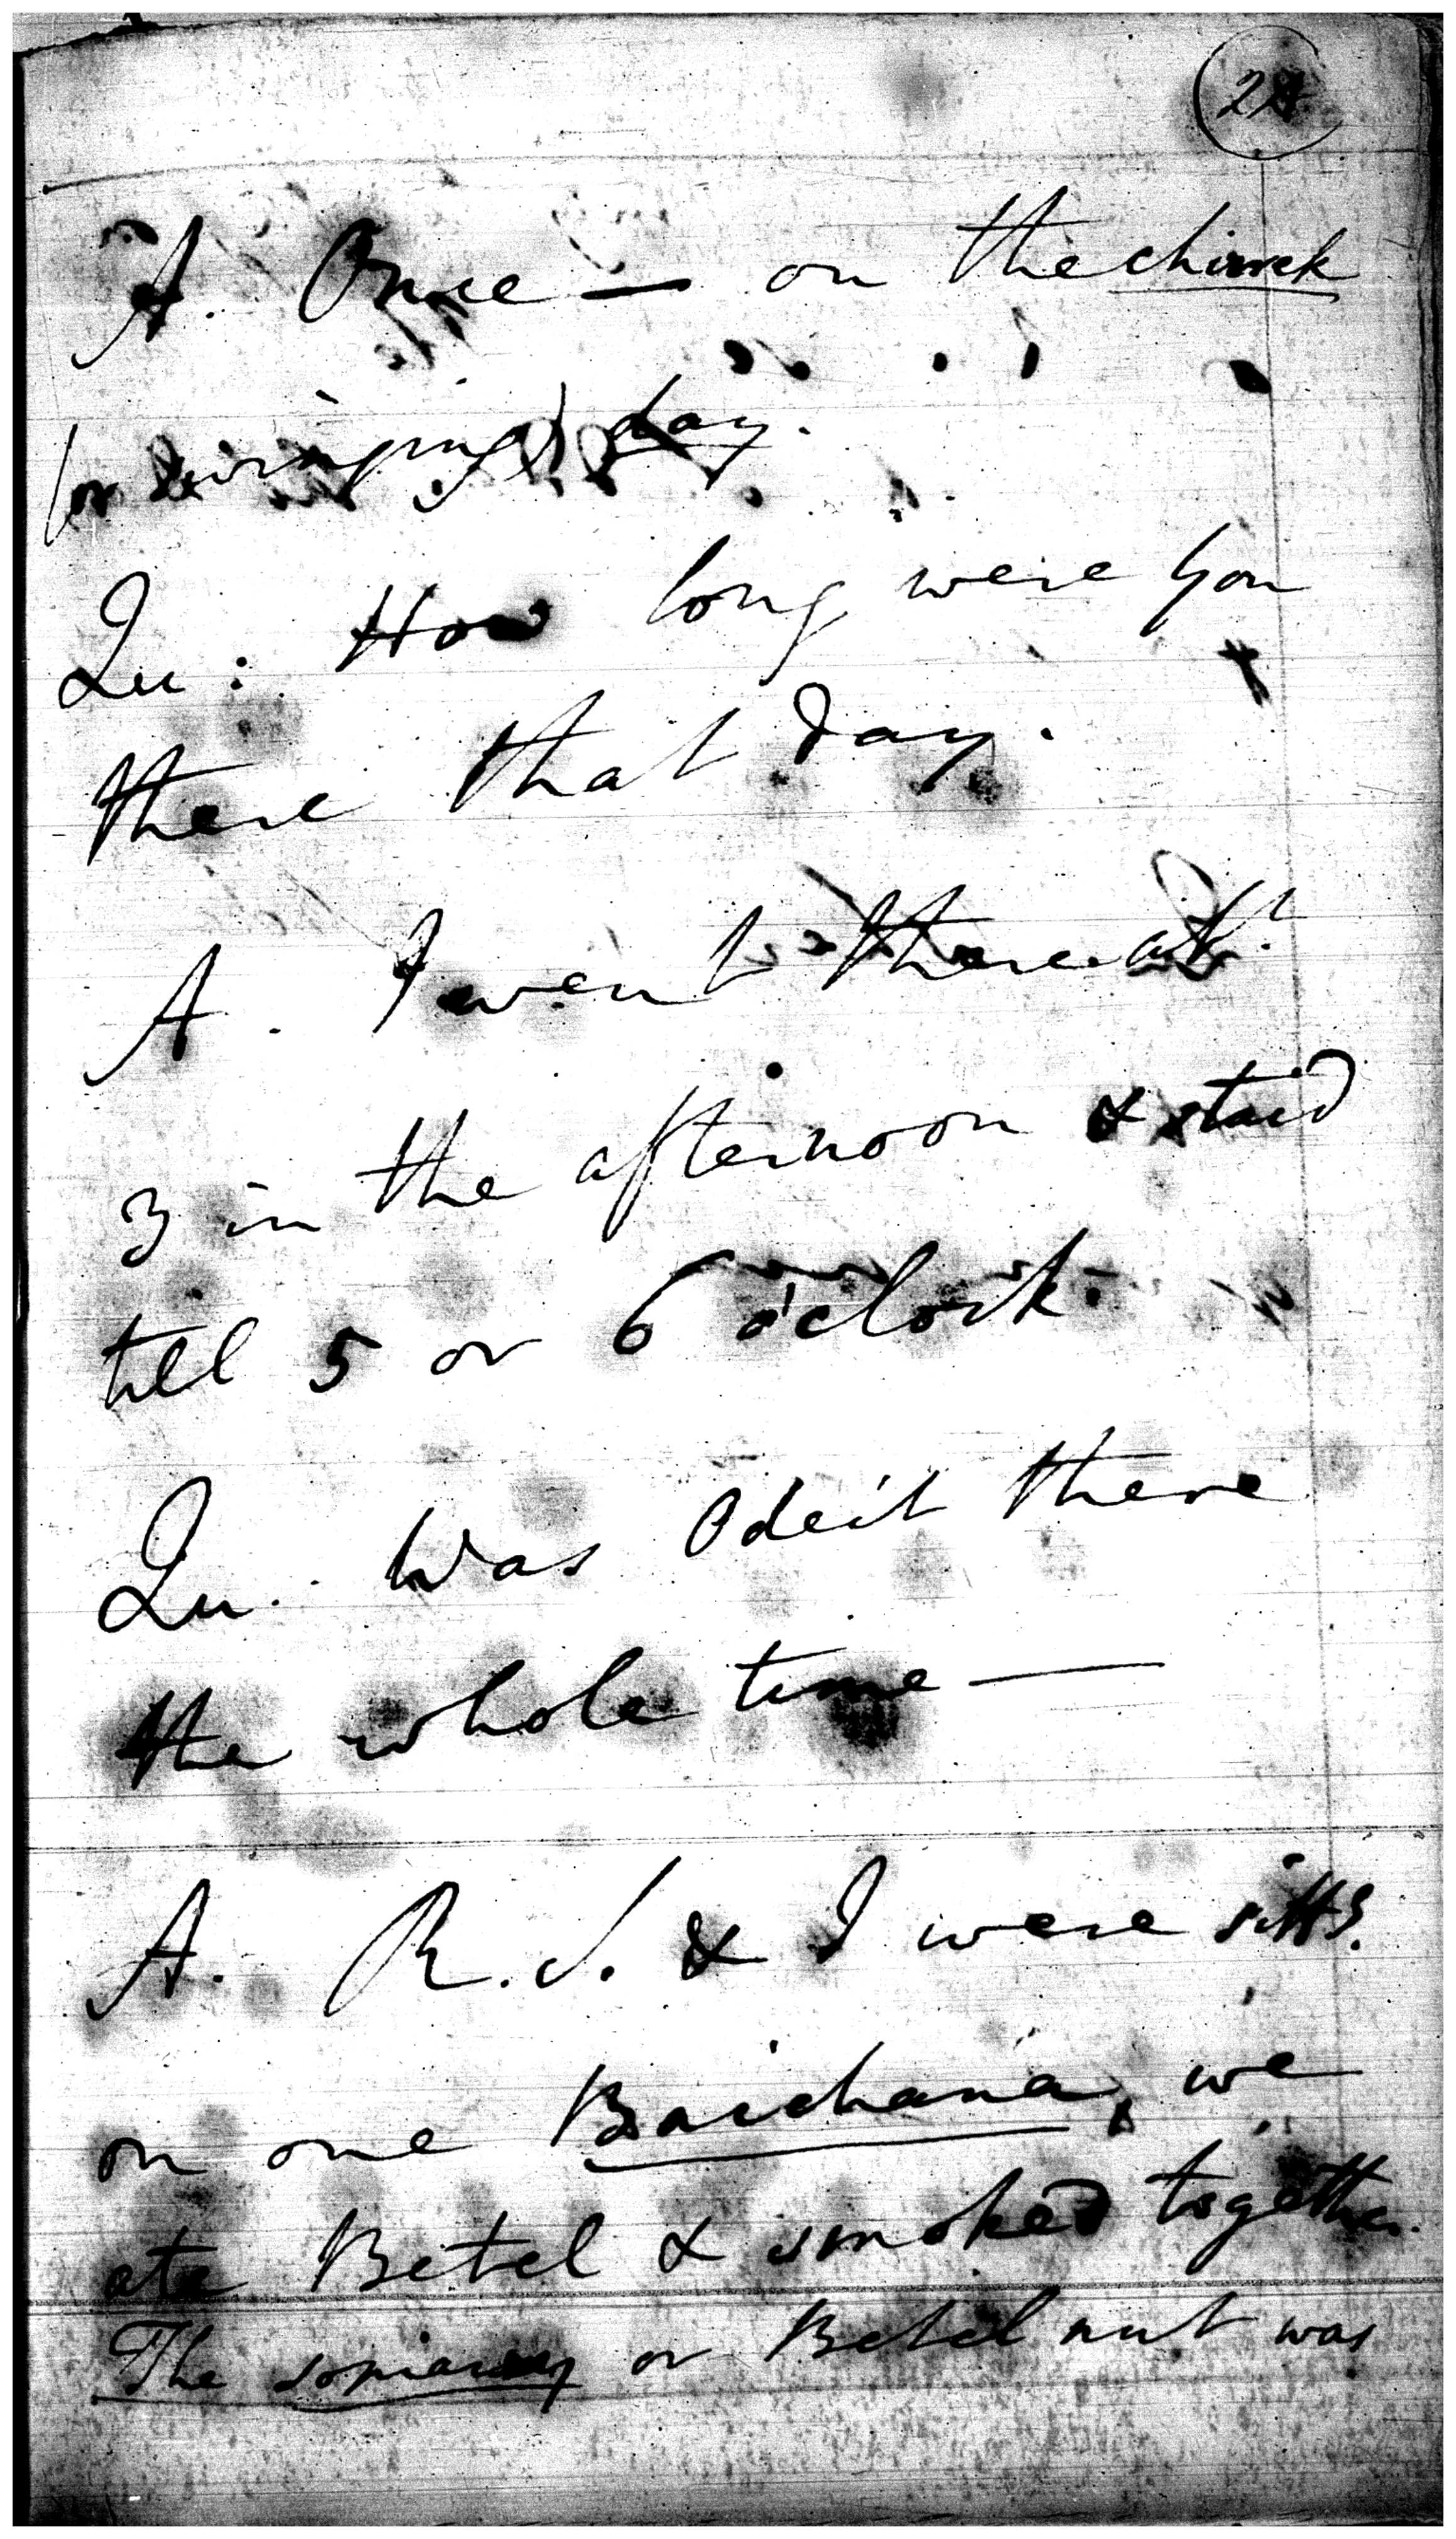 A. Once — on the
(or swinging) day.
Qu: How long were you
there that day.
A. I went there abt.
3 in the afternoon & staid
till 5 or 6 o'clock.
Qu. Was Odeit there
the whole time —
A. R. J. & I were sittg.
on one Baichana, we
ate Betel & smoked together.
The or Betel nut was